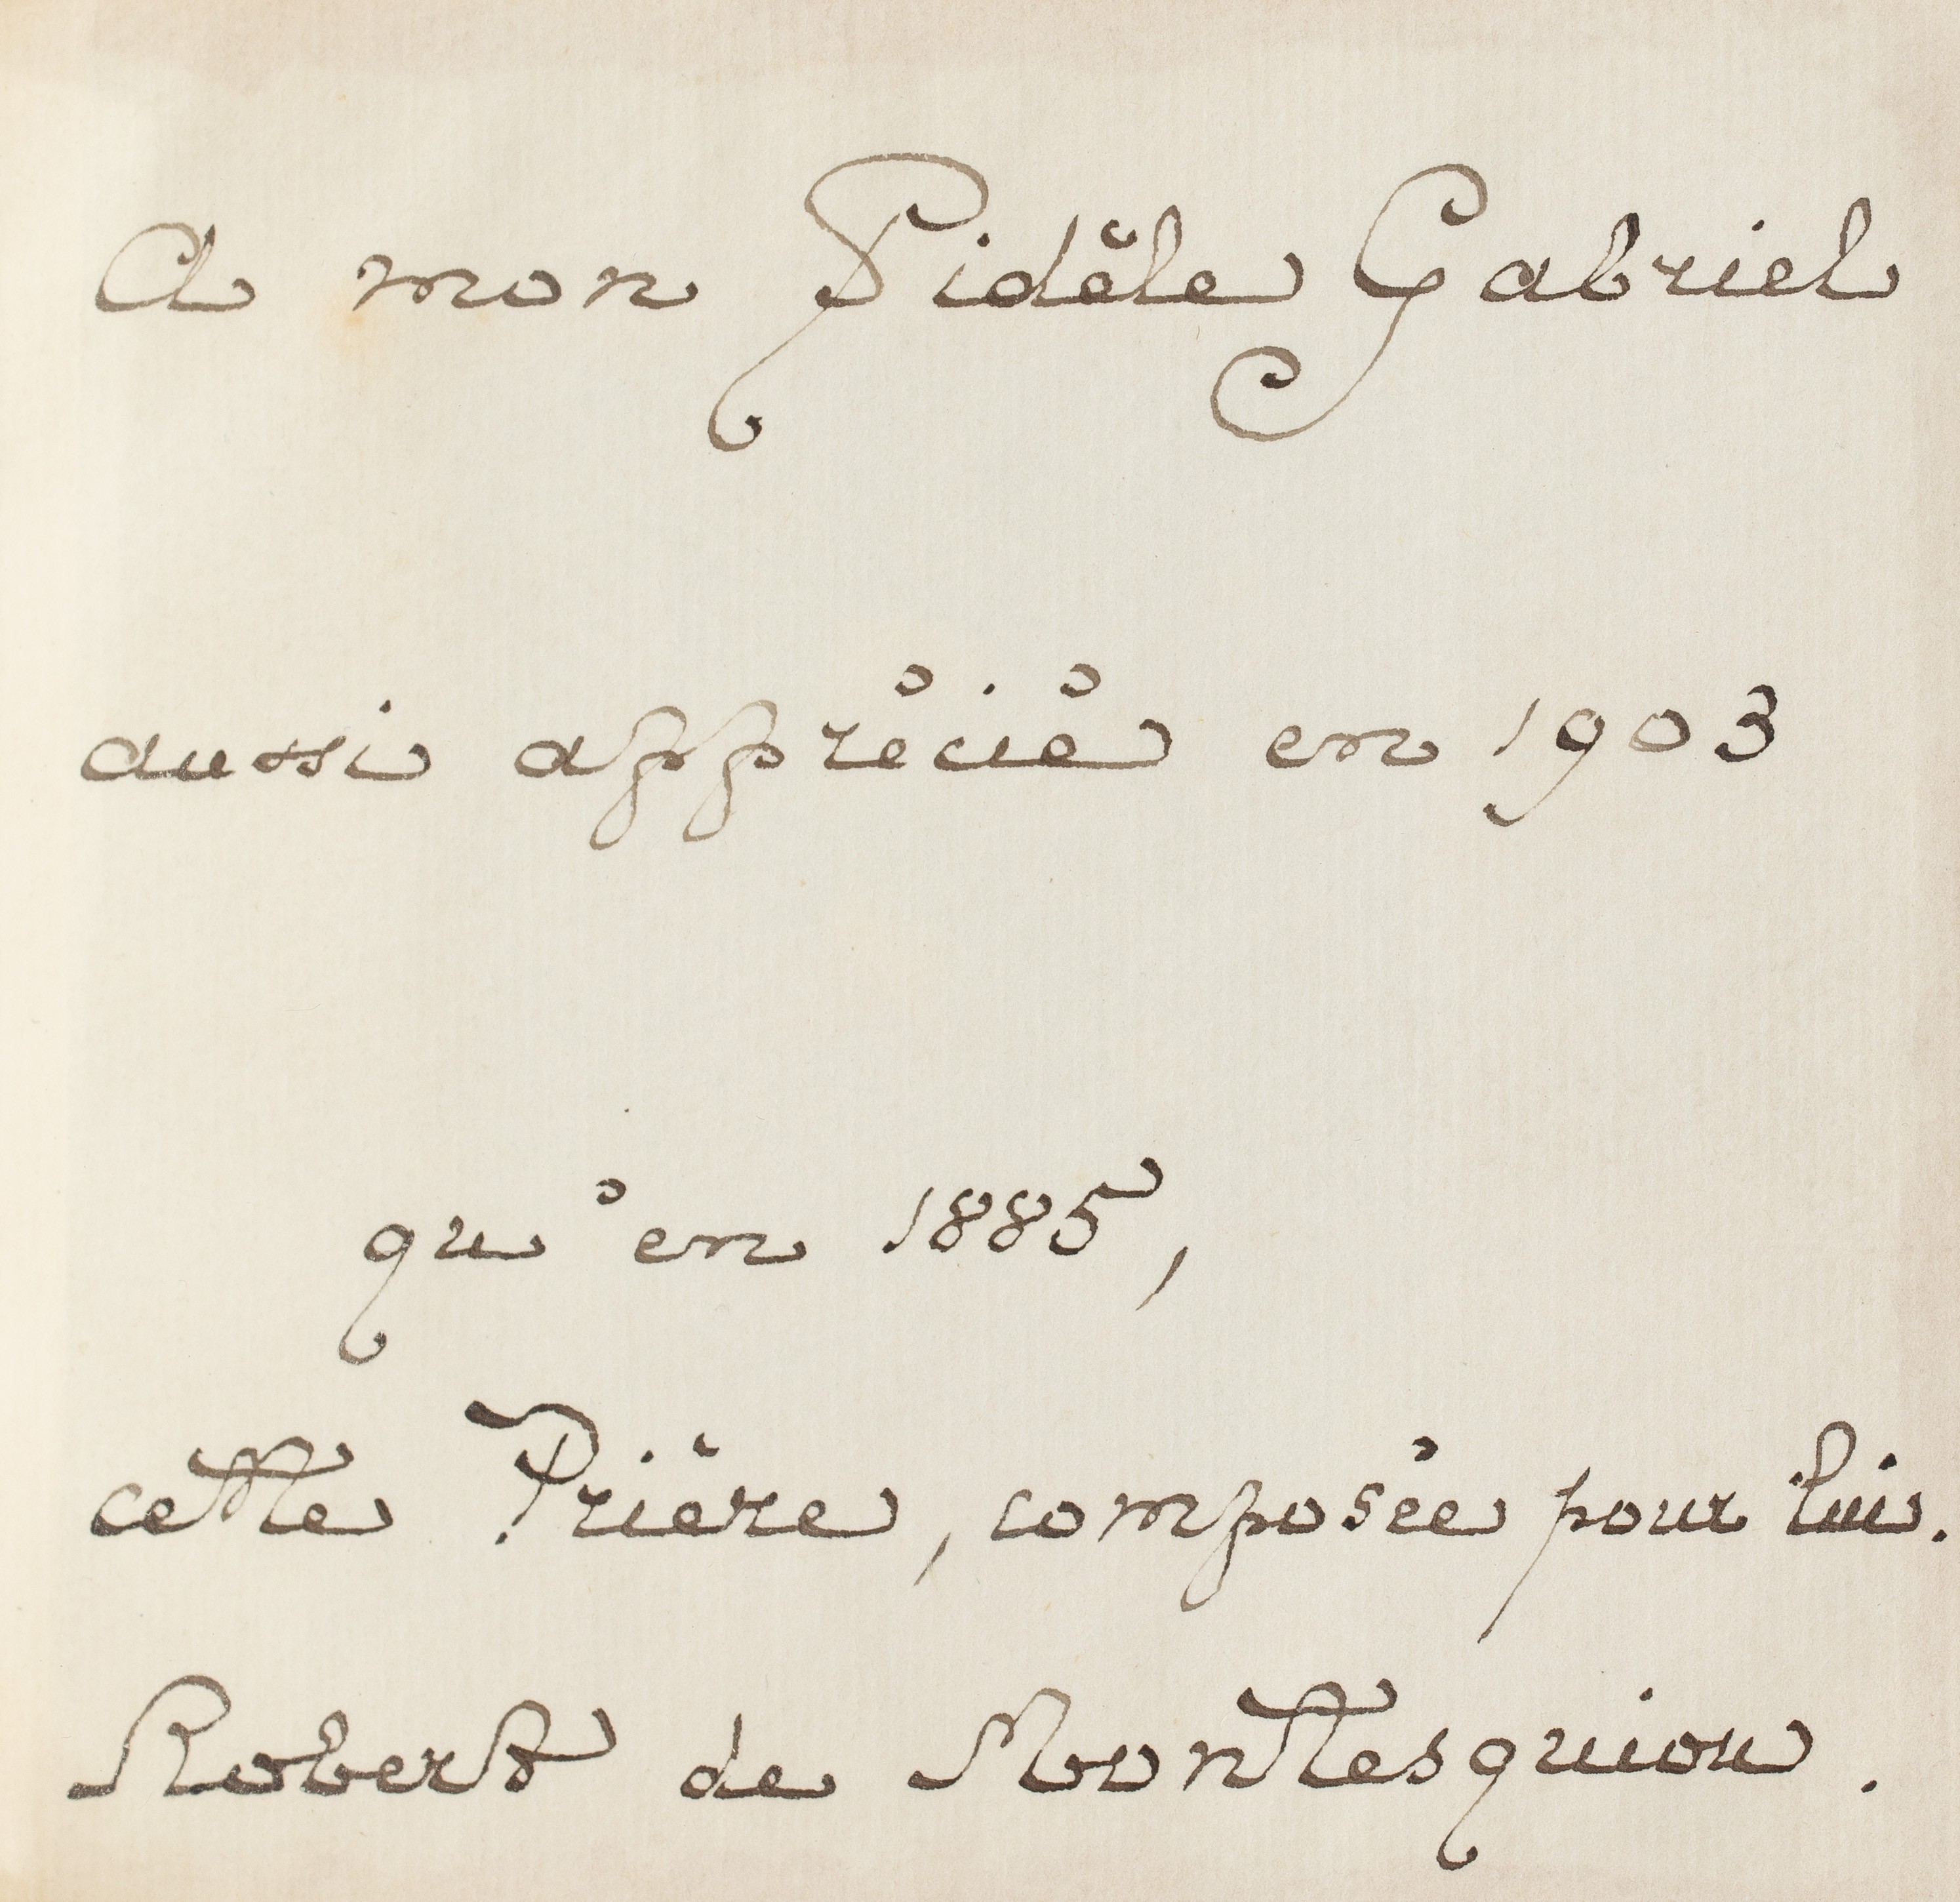 A mon Fidèle Gabriel
aussi apprécié en 1903
qu'en 1885,
cette Prière, composée pour lui.
Robert de Montesquiou.